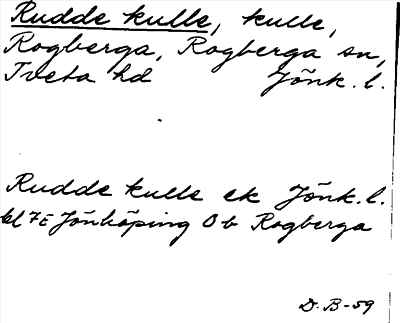 Rudde kulle, kulle,
Rogberga, Rogberga sn,
Tveta hd Jönk. l.
Rudde kulle ek Jönk. l.
bl 7E Jönköping 0b Rogberga
D.B-59